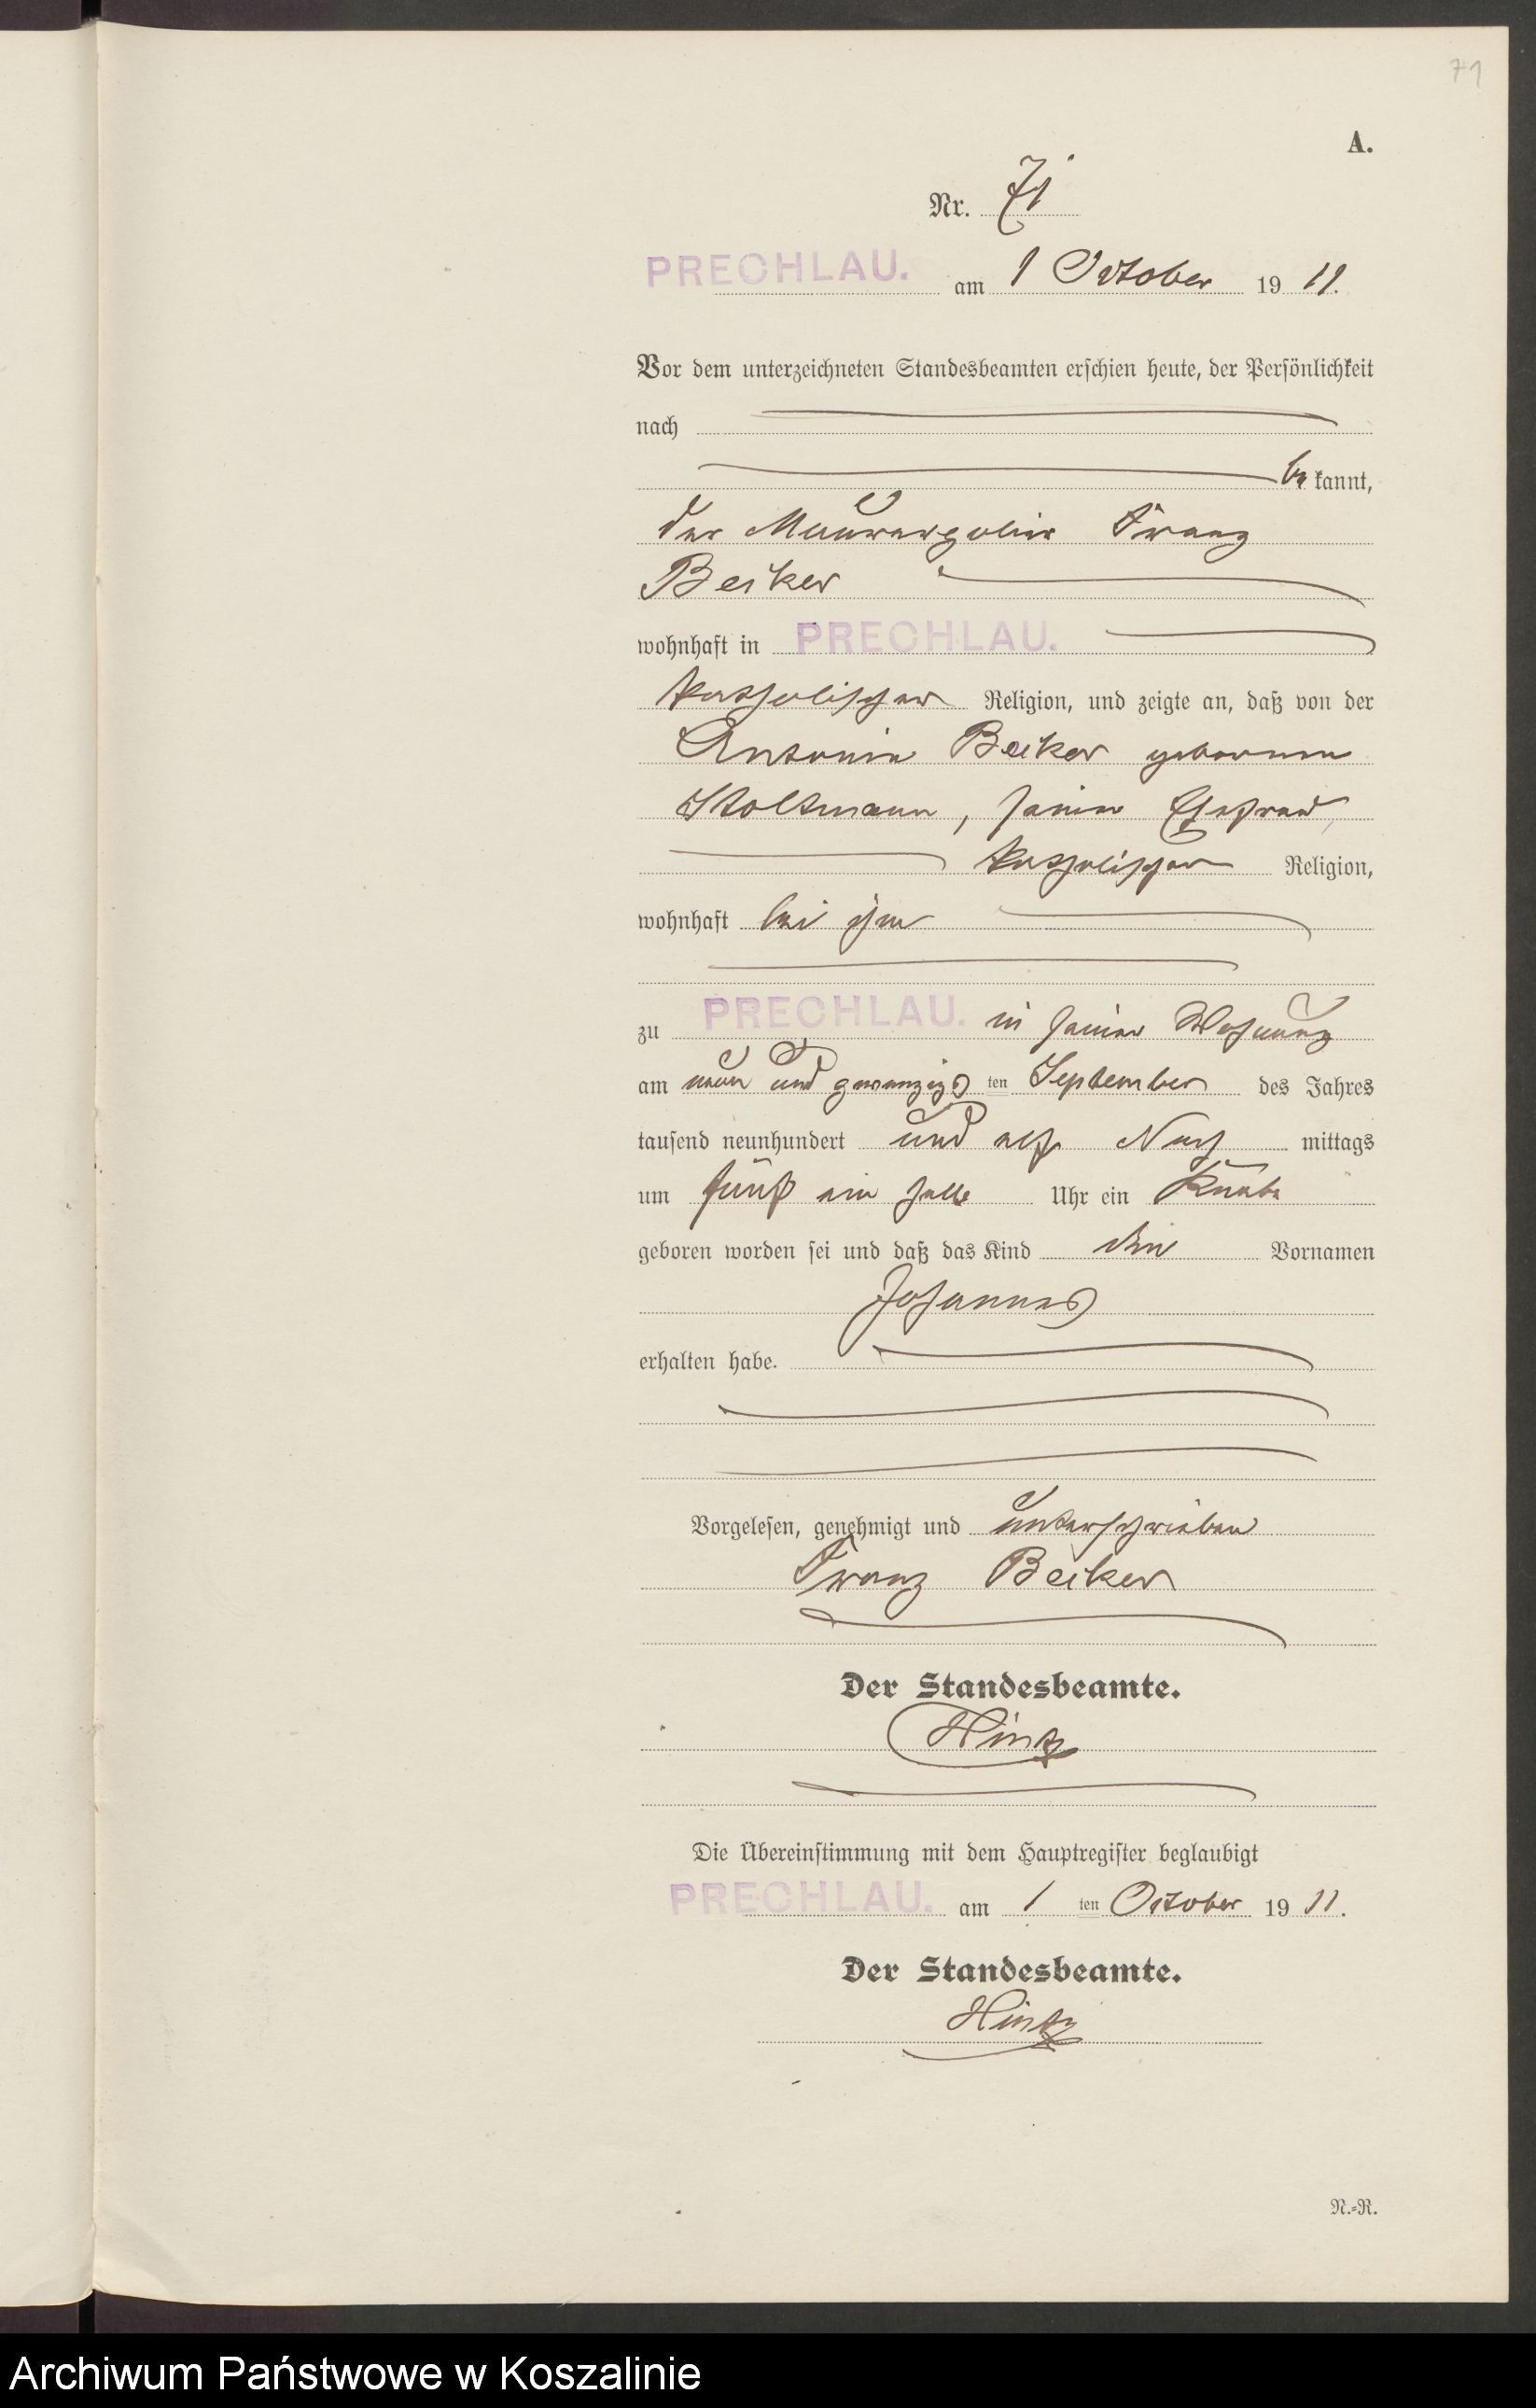 71
A.
Nr. 71
PRECHLAU. am 1 October 19 11.
Vor dem unterzeichneten Standesbeamten erschien heute, der Persönlichkeit
nach
be kannt,
der Maurerpolier Franz
Beiker
wohnhaft in PRECHLAU.
katholischer Religion, und zeigte an, daß von der
Antonie Beiker geborenen
Stoltmann, seiner Ehefrau,
katholischer Religion,
wohnhaft bei ihm
zu PRECHLAU. in seiner Wohnung
am neun und zwanzigs ten September des Jahres
tausend neunhundert und elf Nach mittags
um fünf ein halb Uhr ein Knabe
geboren worden sei und daß das Kind den Vornamen
Johannes
erhalten habe.
Vorgelesen, genehmigt und unterschrieben
Franz Beiker
Der Standesbeamte.
Hintz
Die Übereinstimmung mit dem Hauptregister beglaubigt
PRECHLAU. am 1 ten October 19 11.
Der Standesbeamte.
Hintz
N.=R.
Archiwum Państwowe w Koszalinie